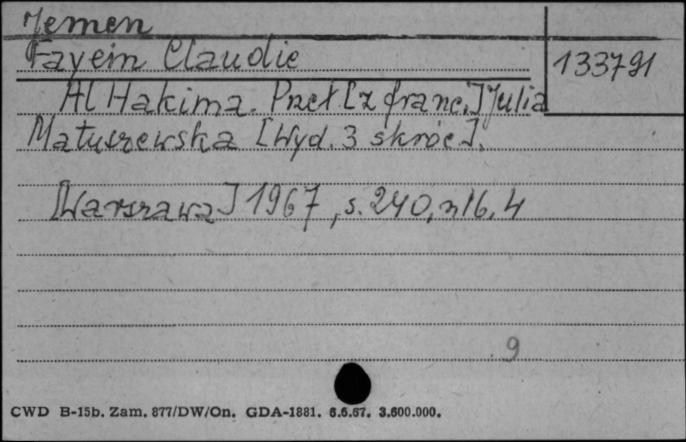 Jemen
Fayein Claudie
133791
Al Hakima. Przeł. [z franc.] Julia
Matuszewska [Wyd. 3 skróc.].
[Warszawa] 1967, s. 240, nlb. 4
9
CWD B-15b. Zam. 877/DW/On. GDA-1881. 6.6.67. 3.600.000.